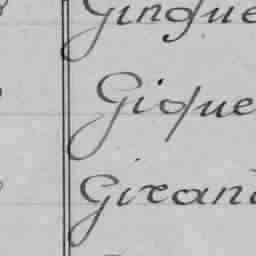 Gingue
Gique
Giran